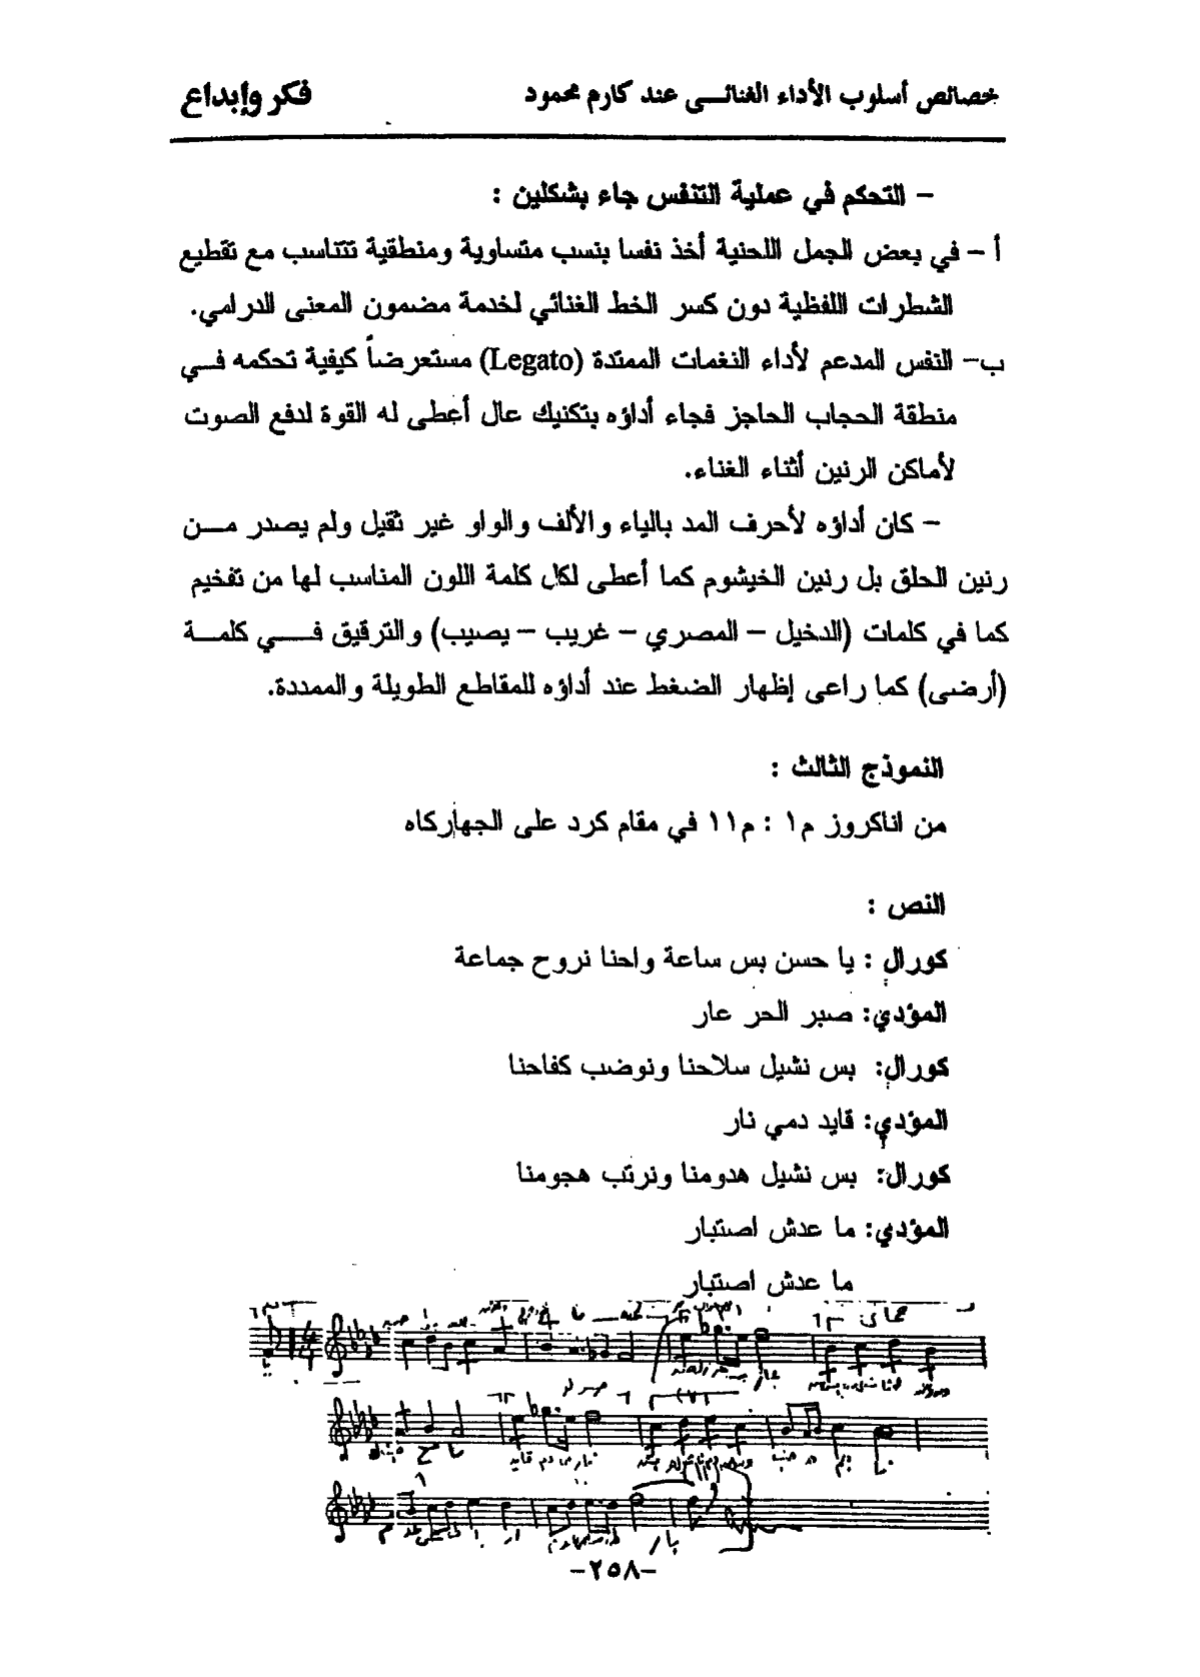 خصائص أسلوب الأداء الغنائـــي عند كارم محمود
فكر وإبداع
– التحكم في عملية التنفس جاء بشكلين :
أ – في بعض الجمل اللحنية أخذ نفسا بنسب متساوية ومنطقية تتناسب مع تقطيع
الشطرات اللفظية دون كسر الخط الغنائي لخدمة مضمون المعنى الدرامي.
ب– النفس المدعم لأداء النغمات الممتدة (Legato) مستعرضاً كيفية تحكمه فـــي
منطقة الحجاب الحاجز فجاء أداؤه بتكنيك عال أعطى له القوة لدفع الصوت
لأماكن الرنين أثناء الغناء.
– كان أداؤه لأحرف المد بالياء والألف والواو غير ثقيل ولم يصدر مـــن
رنين الحلق بل رنين الخيشوم كما أعطى لكل كلمة اللون المناسب لها من تفخيم
كما في كلمات (الدخيل – المصري – غريب – يصيب) والترقيق فـــي كلمـــة
(أرضى) كما راعى إظهار الضغط عند أداؤه للمقاطع الطويلة والممددة.
النموذج الثالث :
من اناكروز م١ : م١١ في مقام كرد على الجهاركاه
النص :
كورال : يا حسن بس ساعة واحنا نروح جماعة
المؤدي: صبر الحر عار
كورال: بس نشيل سلاحنا ونوضب كفاحنا
المؤدي: قايد دمي نار
كورال: بس نشيل هدومنا ونرتب هجومنا
المؤدي: ما عدش اصتبار
ما عدش اصتبار
-٢٥٨-